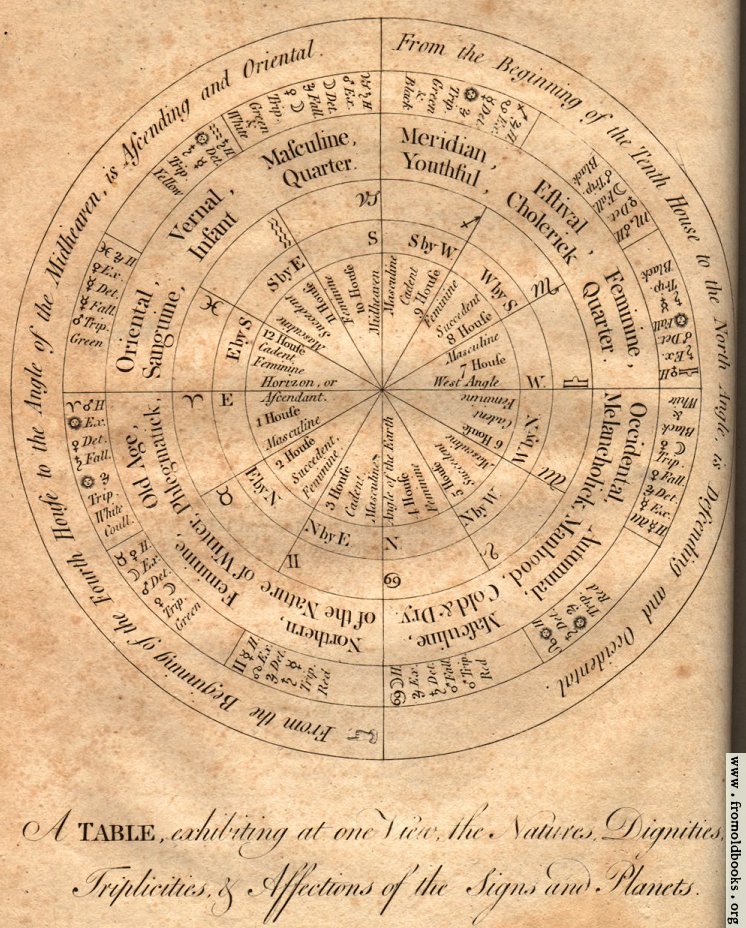 From the Beginning of the Tenth House to the North Angle, is Deſcending and Occidental.
From the Beginning of the Fourth Houſe to the Angle of the Midheaven, is Aſcending and Oriental.
♑ ♄ H
♂ Ex.
☽ Det.
♃ Fall.
☽ ♀
Trip.
Green
&
White
♒ ♄ H
Det.
Trip.
Yellow
♓ ♃ H
♀ Ex.
☿ Det.
☿ Fall
♂ Trip.
Green
♈ ♂ H
☉ Ex.
♀ Det.
♄ Fall.
☉ ♃
Trip
White
Coull.
♉ ♀ H.
☽ Ex.
♂ Det.
♀ ☽
Trip.
Green
♊ ☿ H.
☊ Ex.
♃ Det.
♄ ☿
Trip.
Red
♋ ☽ H
♃ Ex.
♄ Det.
♂ Fall
♂ Trip.
Red
♌ ☉ H
♄ Det.
☉ ♃
Trip.
Red
♍ ☿ H
☿ Ex.
♃ Det.
♀ Fall.
♀ ☽
Trip.
Black
&
White
♎ ♀ H
♄ Ex.
♂ Det.
☉ Fall
♄ ☿
Trip
Black
♏ ♂ H
♀ Det.
☽ Fall.
♂ Trip.
Black
♐ ♃ H
☋ Ex.
☿ Det.
☉ ♃
Trip.
Green
&
Black
Maſculine,
Quarter.
Vernal,
Infant
Oriental,
Sanguine,
Meridian,
Youthful,
Eſtival,
Cholerick
Feminine,
Quarter.
Occidental,
Melancholick,
Autumnal,
Manhood,
Maſculine,
Cold & Dry.
Northern,
of the Nature of Winter,
Feminine,
Phlegmatick,
Old Age,
♑
♒
♓
♈
♉
♊
♋
♌
♍
♎
♏
♐
S
S by E
E by S
E
N by E
N by E
N
N by W
W by N
W.
W by S
S by W
Midheaven
10 Houſe
Feminine
11 Houſe
Succedent
Maſculine
12 Houſe
Cadent,
Feminine
Horizon, or
Aſcendant.
1 Houſe
Maſculine
2 Houſe
Succedent,
Feminine
3 Houſe
Cadent
Maſculine
Angle of the Earth
4 Houſe
Feminine
5 Houſe
Succedent
Maſculine
6 Houſe
Cadent
Feminine
West Angle
7 Houſe
Maſculine
8 Houſe
Succedent
Feminine
9 Houſe
Cadent
Maſculine
A TABLE, exhibiting at one View, the Natures, Dignities,
Triplicities, & Affections of the Signs and Planets.
www.fromoldbooks.org